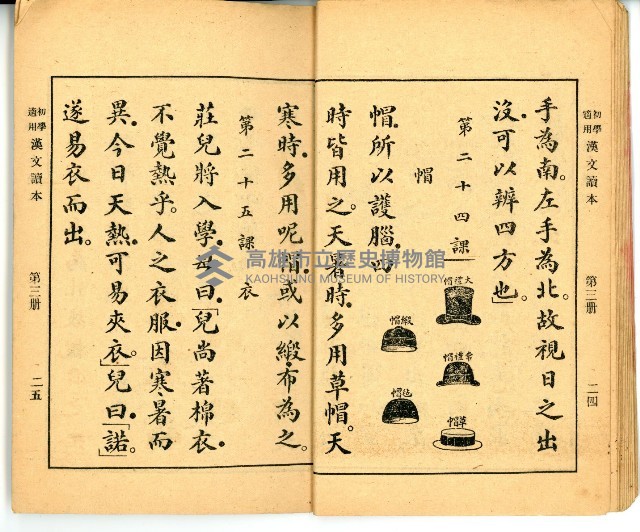 初學適用 漢文讀本 第三册 二四
手為南。左手為北。故視日之出
沒。可以辨四方也。」
第二十四課 帽
大禮帽
常禮帽
草帽
緞帽
毡帽
帽。所以護腦。
時皆用之。天暑時。多用草帽。天
寒時。多用呢帽。或以緞布為之。
第二十五課 衣
莊兒將入學。母曰。「兒尚著棉衣。
不覺熱乎。人之衣服。因寒暑而
異。今日天熱。可易夾衣。」兒曰。「諾。」
遂易衣而出。
初學適用 漢文讀本 第三册 二五
高雄市立歷史博物館
KAOHSIUNG MUSEUM OF HISTORY